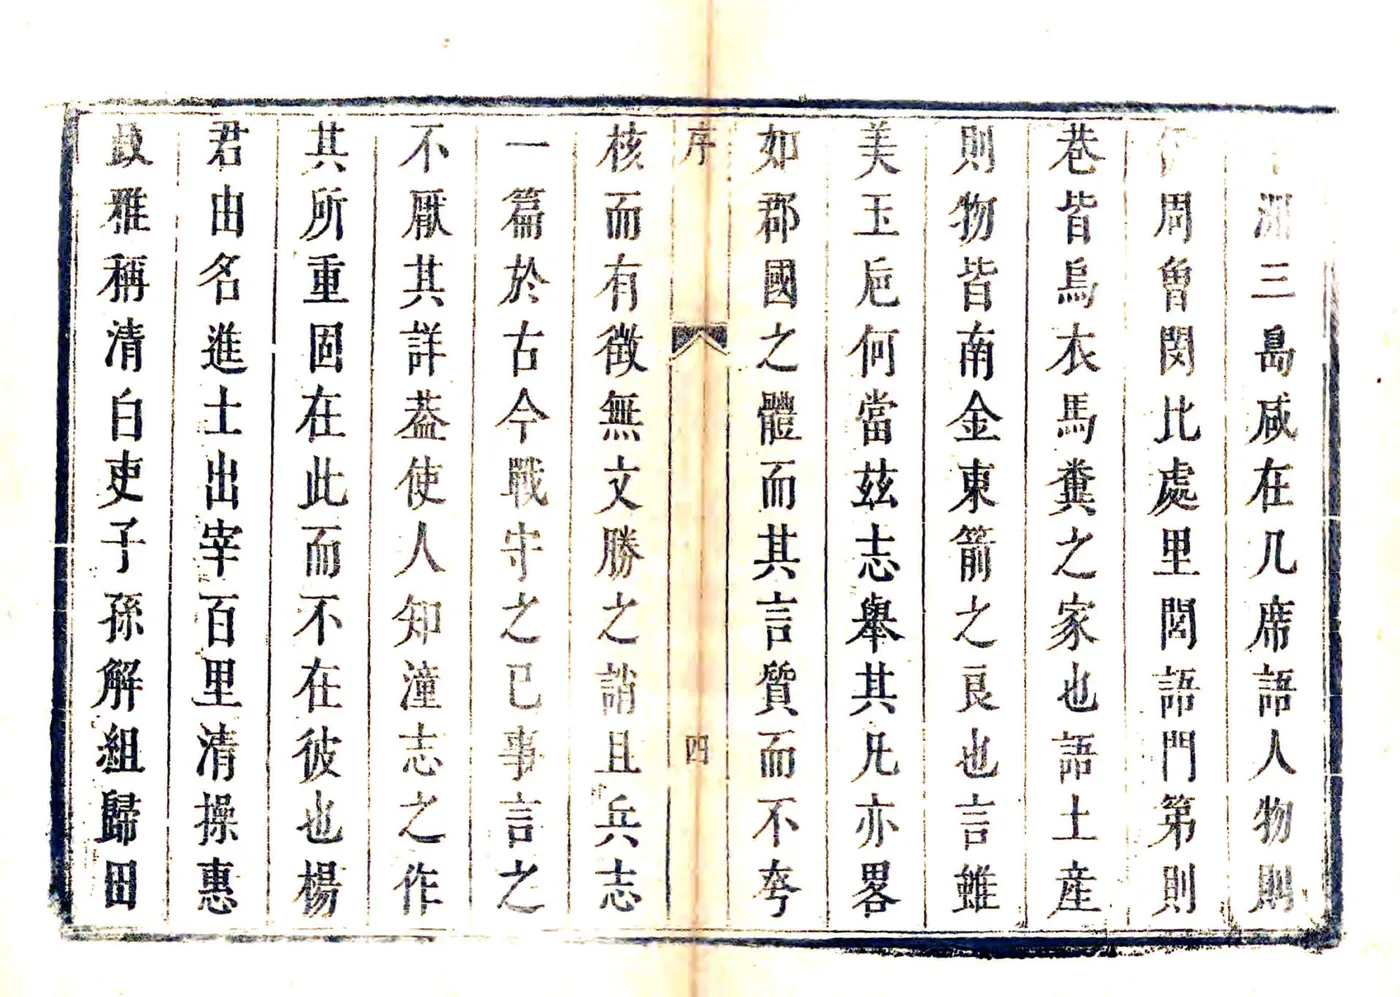 洲三島咸在几席語人物則
周魯閔比處里閭語門第則
巷皆烏衣馬糞之家也語土産
則物皆南金東箭之良也言雖
美玉巵何當茲志舉其凡亦畧
如郡國之體而其言質而不夸
序
四
核而有徴無文勝之誚且兵志
一篇於古今戰守之已事言之
不厭其詳葢使人知潼志之作
其所重固在此而不在彼也楊
君由名進士出宰百里清操惠
政雅稱清白吏子孫解組歸田